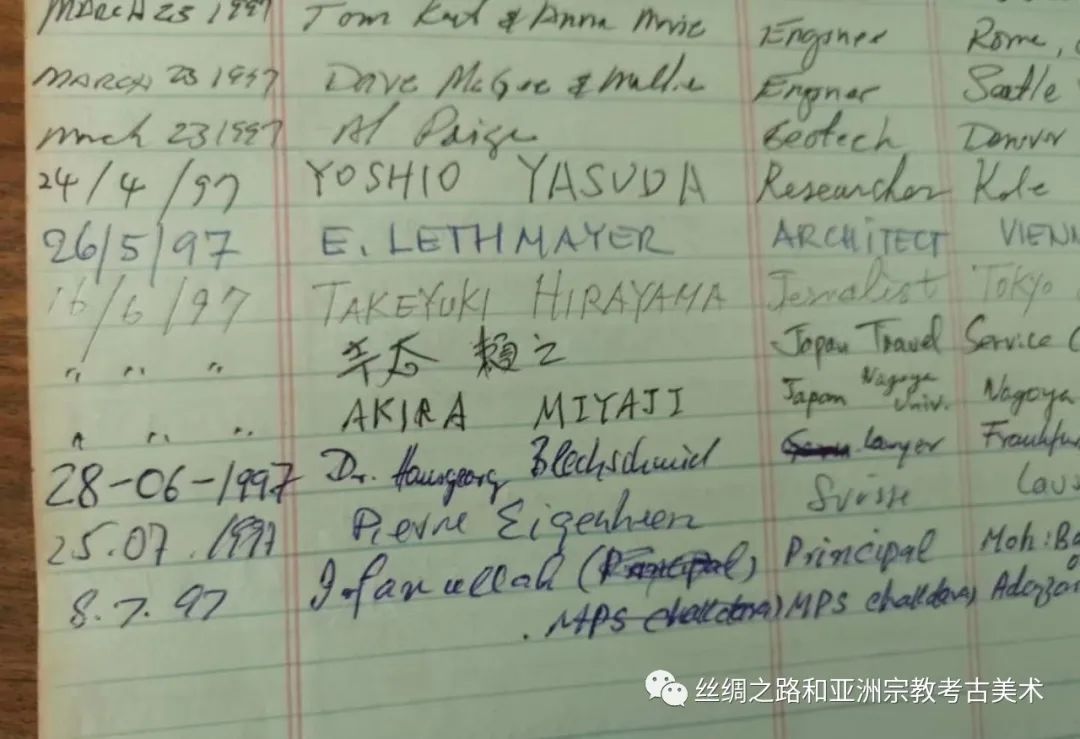 MARCH 23 1997 Tom & Anna Engoner Rome,
MARCH 23 1997 Dave McGee & Engner Seatle
March 23 1997 Al Paige Geotech Denver
24/4/97 YOSHIO YASUDA Researcher Kobe
26/5/97 E. LETHMAYER ARCHITECT VIENN
16/6/97 TAKEYUKI HIRAYAMA Jernalist TOKYO
〃 〃 〃 頼之 Japan Travel Service C
〃 〃 〃 AKIRA MIYAJI Japan Nagoya Univ. Nagoya
28-06-1997 Dr. Hansgeorg Blechschmid Lawyer Frankfur
25.07.1997 Pierre Suisse Laus
8.7.97 Irfanullah (Principal) Principal Moh:Ba
MPS chakdara) MPS chakdara)
丝绸之路和亚洲宗教考古美术